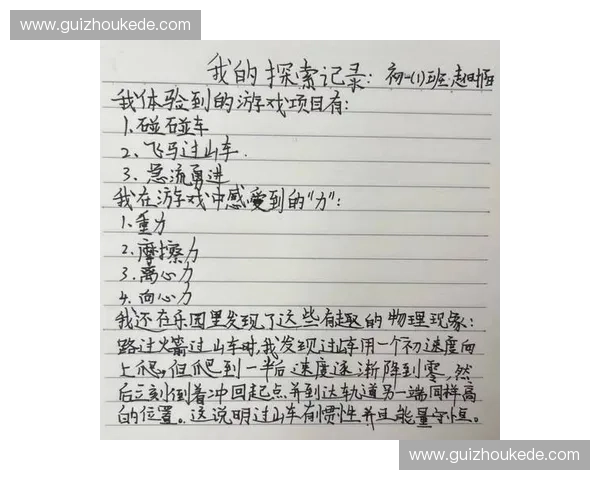 www.guizhoukede.com
我的探索记录：初一(1)班
我体验到的游戏项目有：
1.碰碰车
2、飞马过山车.
3、急流勇进
我在游戏中感受到的“力”：
1.重力
2.摩擦力
3.离心力
4.向心力
我还在乐园里发现了这些有趣的物理现象：
路过火箭过山车时，我发现过山车用一个初速度向
上爬，但爬到一半后速度逐渐降到零，然
后立刻倒着冲回起点并到达轨道另一端同样高
的位置。这说明过山车有惯性并且能量守恒。
www.guizhoukede.com